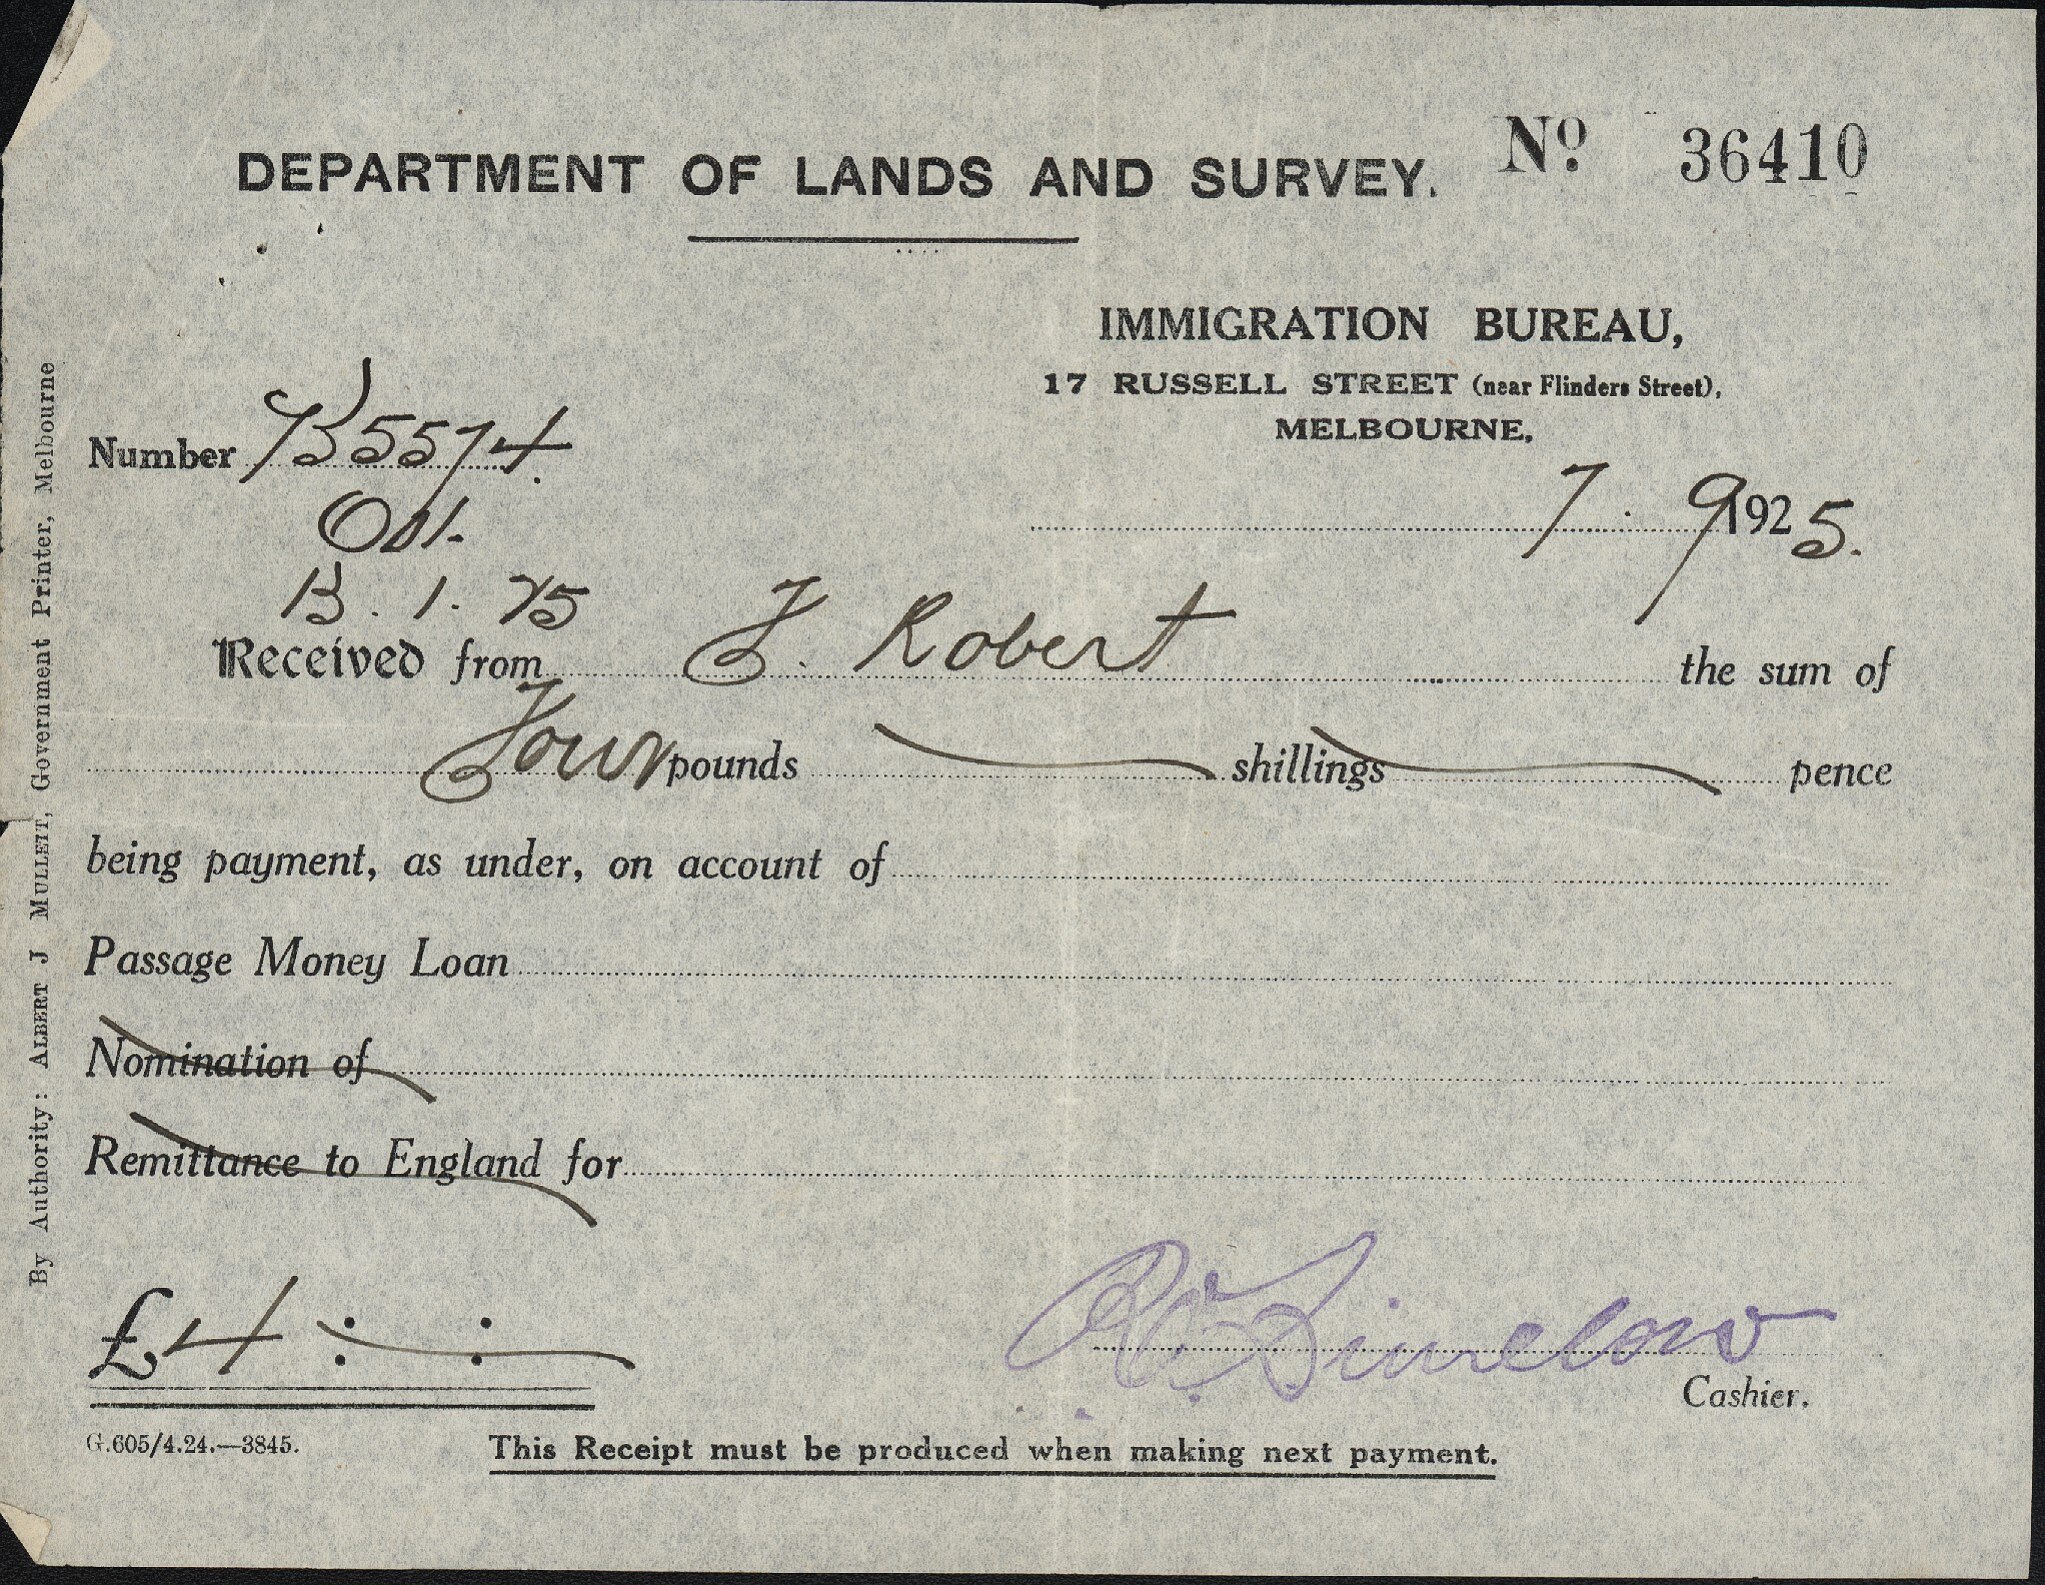 DEPARTMENT OF LANDS AND SURVEY. No. 36410
IMMIGRATION BUREAU,
17 RUSSELL STREET (near Flinders Street),
MELBOURNE,
Number B5574.
7. 9 1925.
B. 1. 75
Received from F. Robert the sum of
Four pounds shillings pence
being payment, as under, on account of
Passage Money Loan
Nomination of
Remittance to England for
£4 : :
Cashier.
G.605/4.24.—3845.
This Receipt must be produced when making next payment.
By Authority: ALBERT J MULLETT, Government Printer, Melbourne